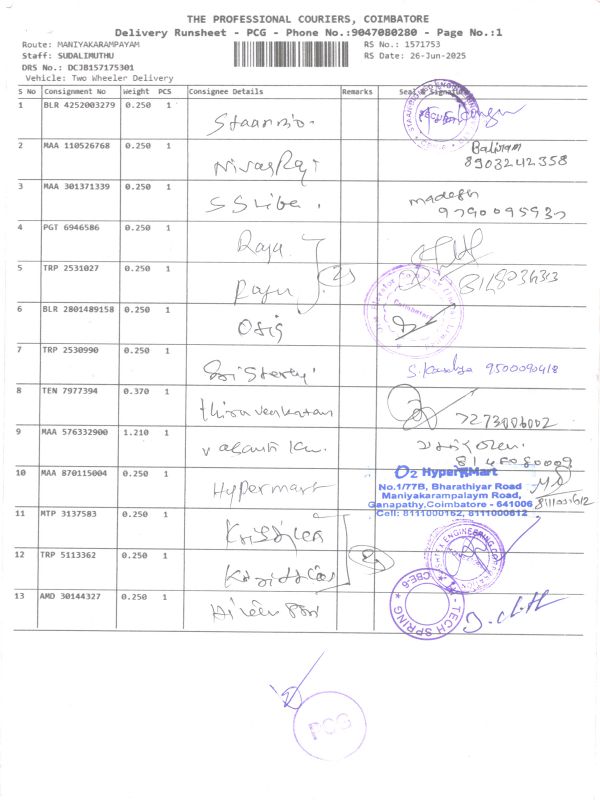 THE PROFESSIONAL COURIERS, COIMBATORE
Delivery Runsheet - PCG - Phone No.:9047080280 - Page No.:1
Route: MANIYAKARAMPAYAM
RS No.: 1571753
Staff: SUDALIMUTHU
RS Date: 26-Jun-2025
DRS No.: DCJB157175301
Vehicle: Two Wheeler Delivery
S No Consignment No Weight PCS Consignee Details Remarks Seal & Signature
1 BLR 4252003279 0.250 1
2 MAA 110526768 0.250 1 Nivasraji Baliram
8903242358
3 MAA 301371339 0.250 1 madesh
9790095937
4 PGT 6946586 0.250 1 Raja
5 TRP 2531027 0.250 1 Raju
6 BLR 2801489158 0.250 1
Coimbatore
7 TRP 2530990 0.250 1 9500090418
8 TEN 7977394 0.370 1 thiru venkatan 7273006002
9 MAA 576332900 1.210 1
8148080009
10 MAA 870115004 0.250 1 Hypermart O2 HyperMart
No.1/77B, Bharathiyar Road
Maniyakarampalaym Road,
Ganapathy,Coimbatore - 641006
Cell: 8111000162, 8111000612
11 MTP 3137583 0.250 1
12 TRP 5113362 0.250 1
CBE-6
13 AMD 30144327 0.250 1
TECH SPRING
PCG